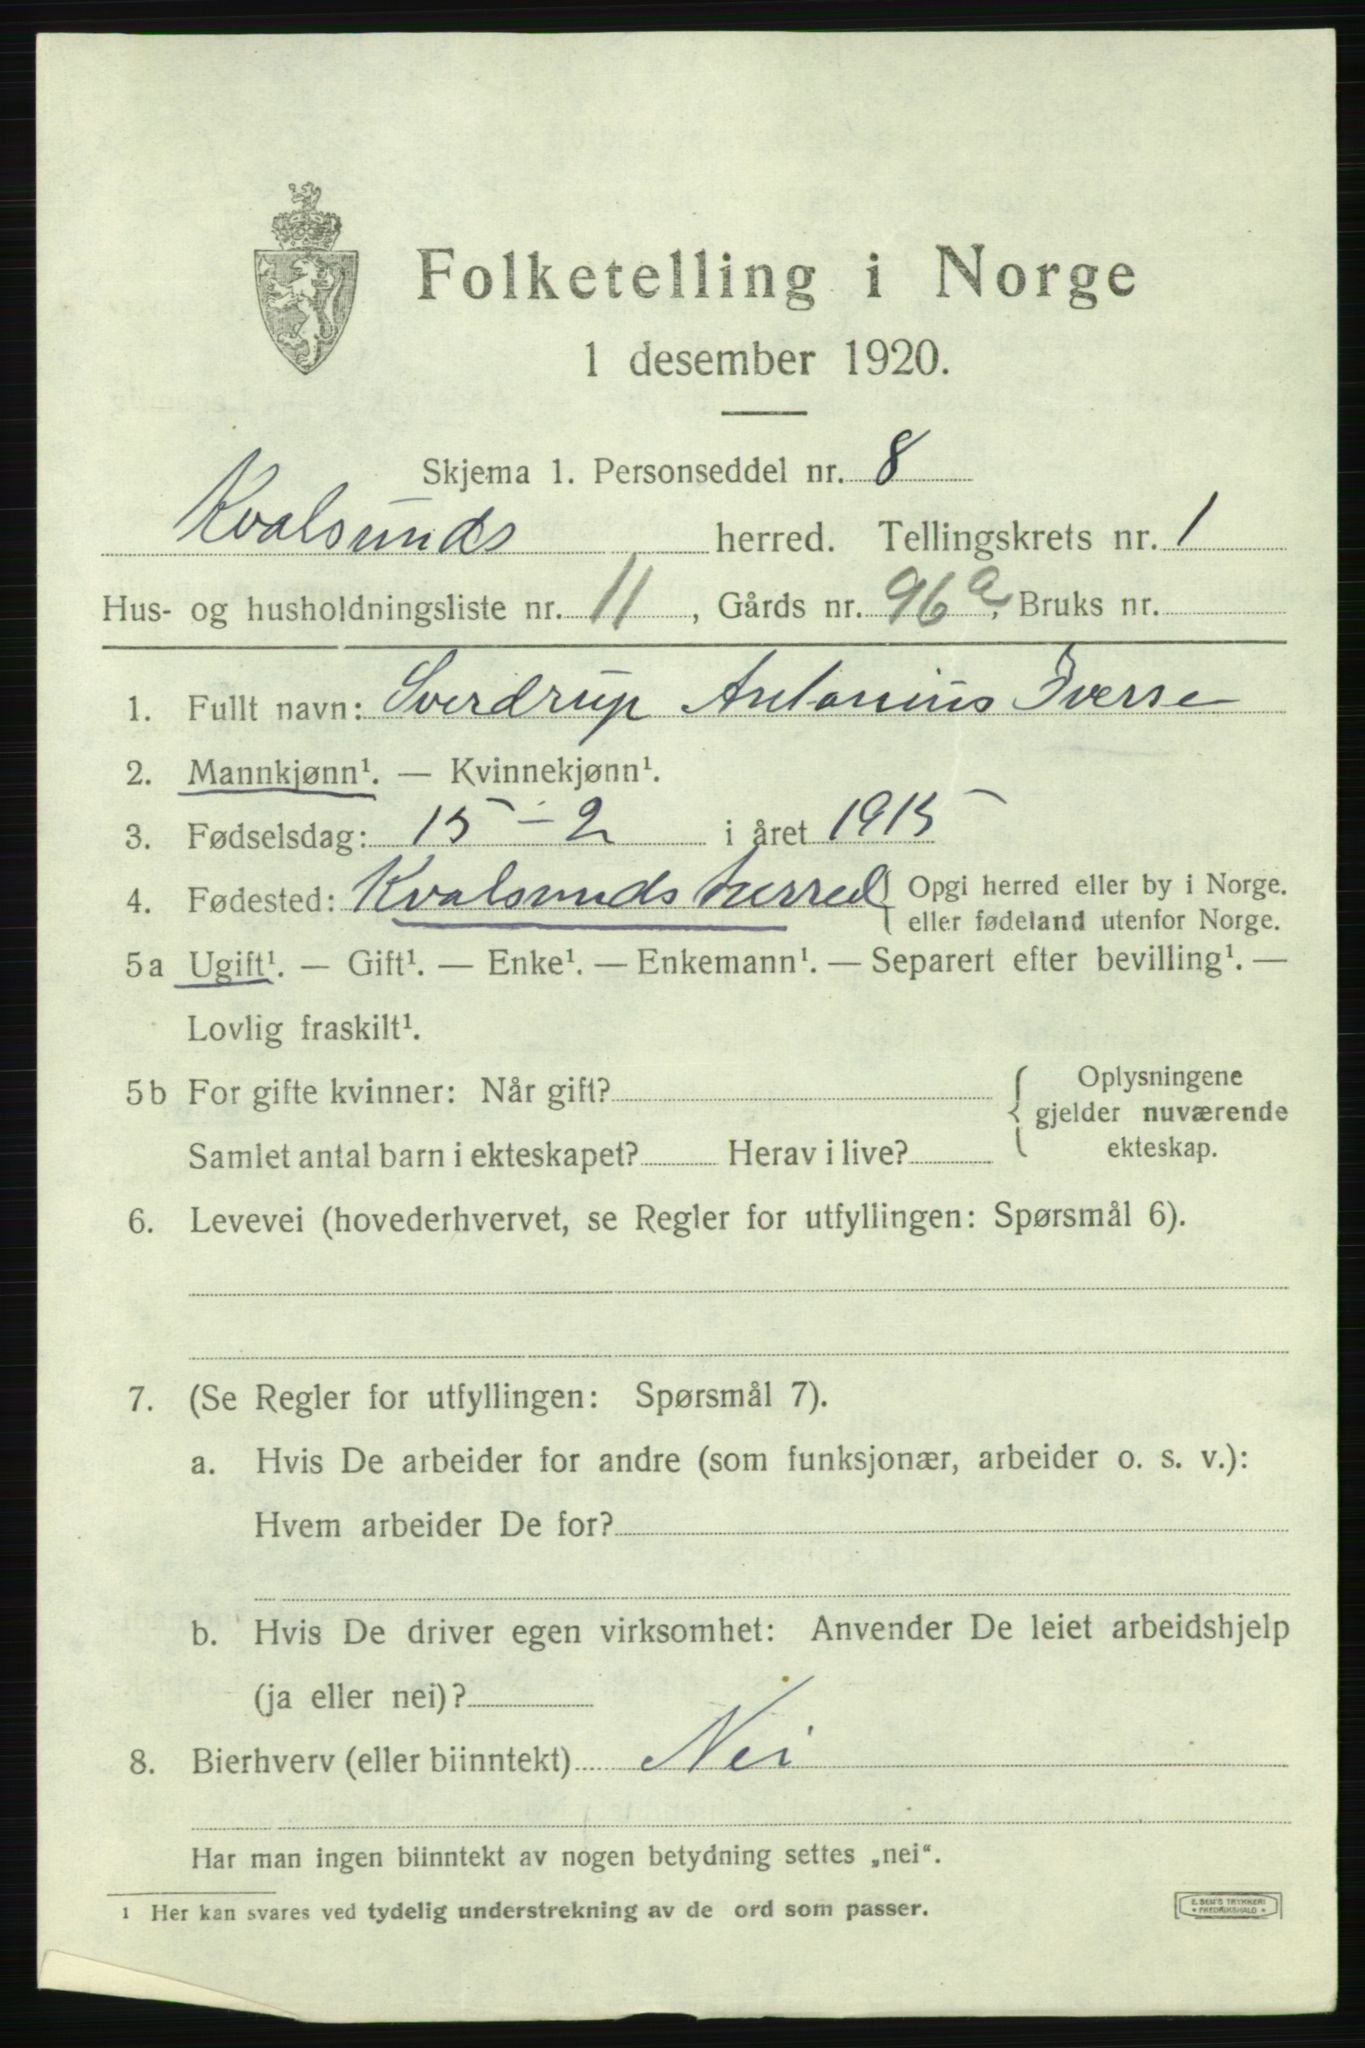 Folketelling i Norge
1 desember 1920.
Skjema 1. Personseddel nr. 8
Kvalsunds herred. Tellingskrets nr. 1
Hus- og husholdningsliste nr. 11, Gårds nr. 96a, Bruks nr.
1. Fullt navn: Sverdrup Antonius Iverse
2. Mannkjønn¹. — Kvinnekjønn¹.
3. Fødselsdag: 15-2 i året 1915
4. Fødested: Kvalsunds herred { Opgi herred eller by i Norge.
eller fødeland utenfor Norge.
5a Ugift¹. — Gift¹. — Enke¹. — Enkemann¹. — Separert efter bevilling¹. —
Lovlig fraskilt¹.
5b For gifte kvinner: Når gift? { Oplysningene
gjelder nuværende
ekteskap.
Samlet antal barn i ekteskapet? Herav i live?
6. Levevei (hovederhvervet, se Regler for utfyllingen: Spørsmål 6).
7. (Se Regler for utfyllingen: Spørsmål 7).
a. Hvis De arbeider for andre (som funksjonær, arbeider o. s. v.):
Hvem arbeider De for?
b. Hvis De driver egen virksomhet: Anvender De leiet arbeidshjelp
(ja eller nei)?
8. Bierhverv (eller biinntekt) Nei
Har man ingen biinntekt av nogen betydning settes „nei“.
1 Her kan svares ved tydelig understrekning av de ord som passer.
E. SEM'S TRYKKERI
* FREDRIKSHALD *